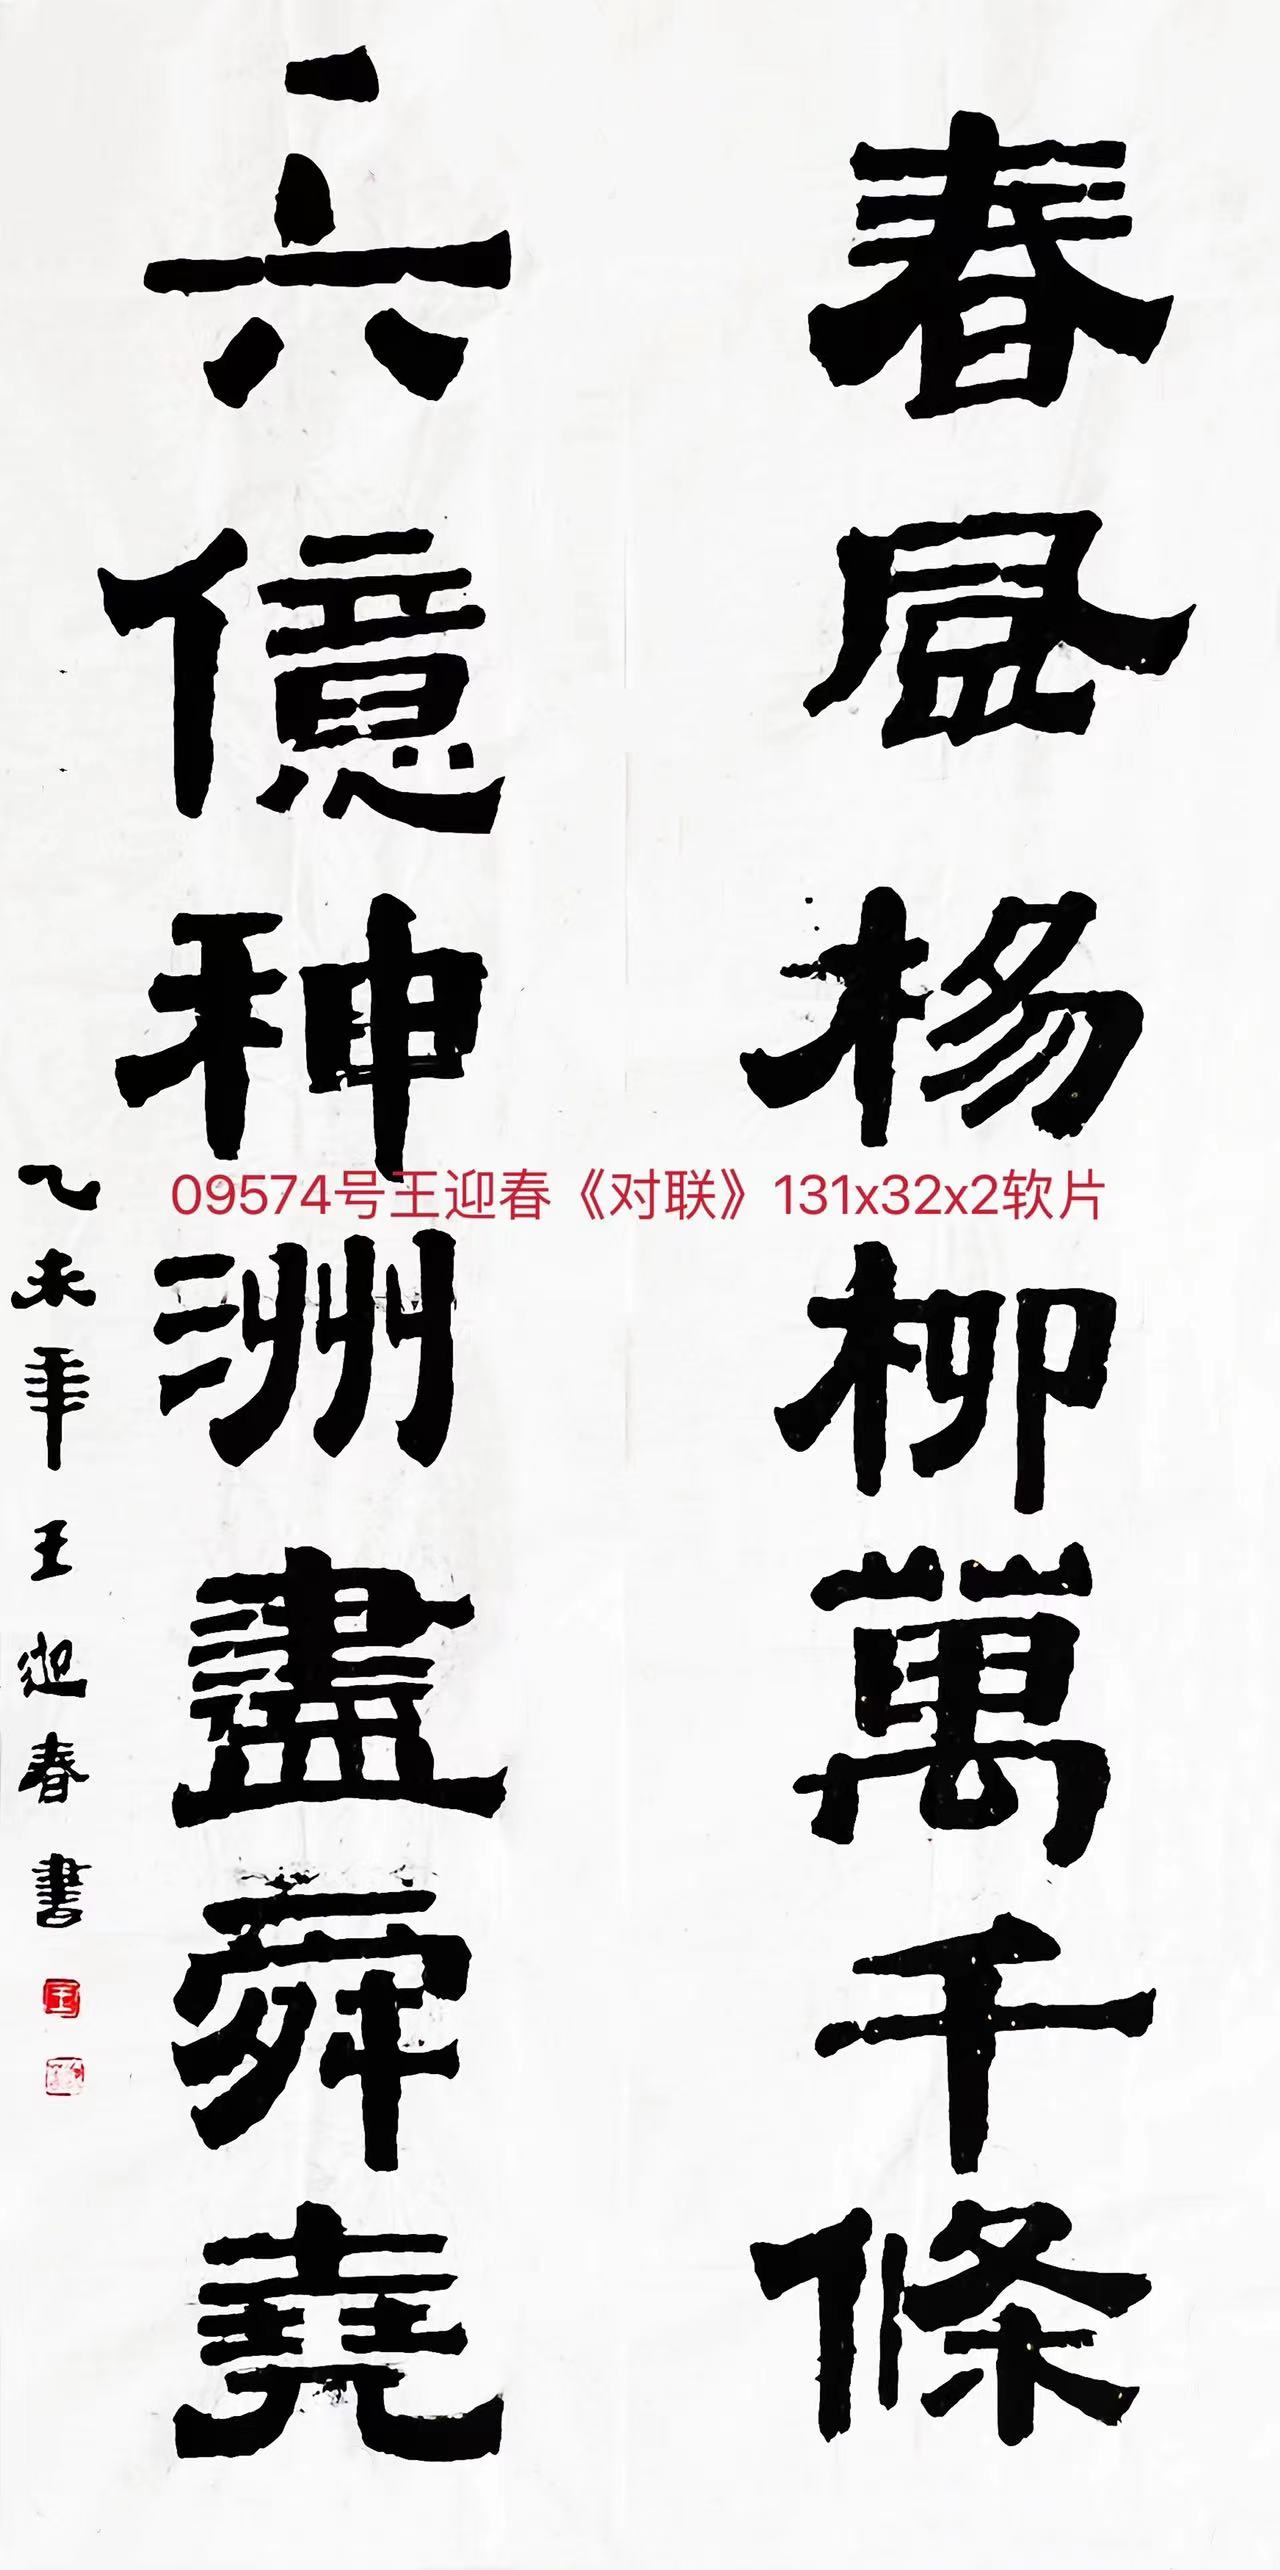 春風楊柳萬千條
六億神洲盡舜堯
乙未年王迎春書
09574号王迎春《对联》131x32x2软片